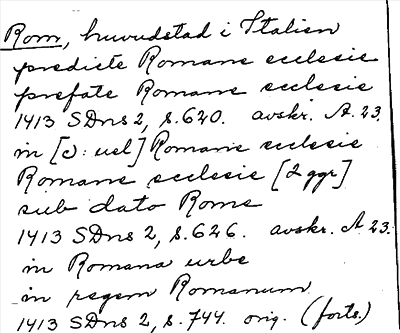 Rom, huvudstad i Italien
predicte Romane ecclesie
prefate Romane ecclesie
1413 SDns 2, s. 620. avskr. A 23.
in [ɔ: uel] Romane ecclesie
Romane ecclesie [2 ggr]
sub dato Rome
1413 SDns 2, s. 626. avskr. A 23.
in Romana urbe
in regem Romanum
1413 SDns 2, s. 744. orig. (forts.)